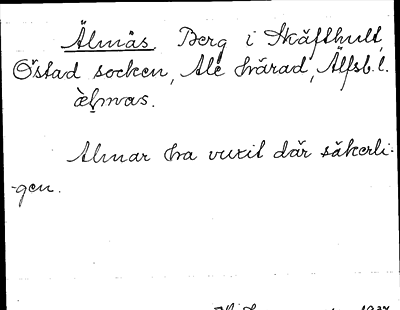 Älmås, Berg i Skäfthult,
Östad socken, Ale härad, Älfsb. l.
àl̥mas.
Almar ha vuxit där säkerli-
-gen.